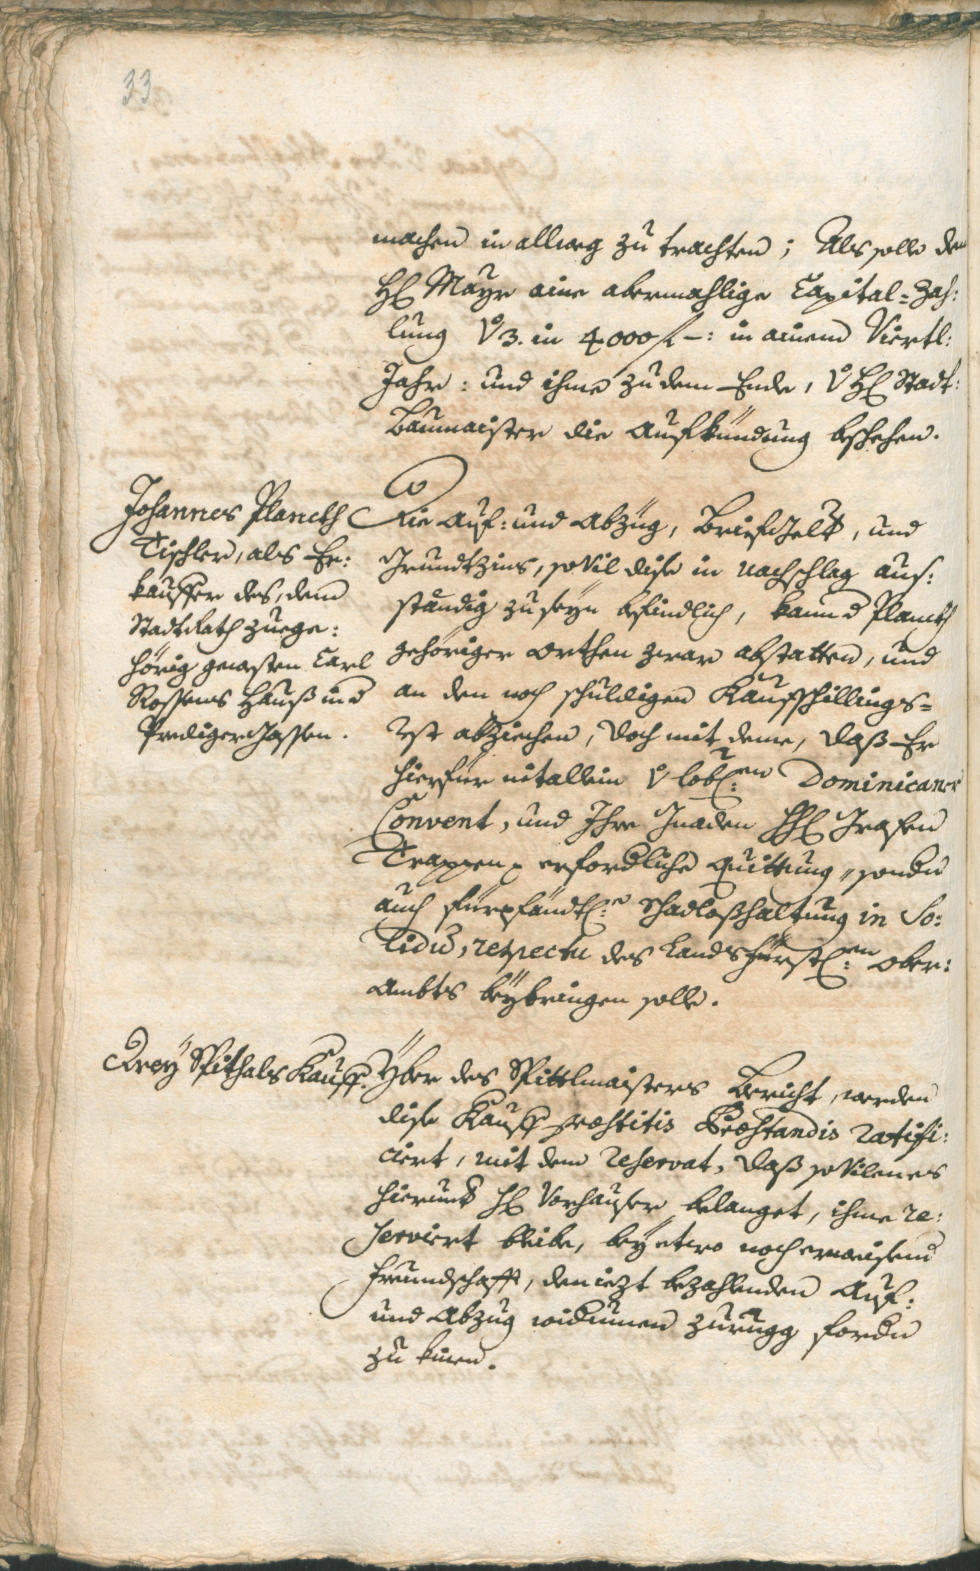 33
machen in allweg zu trachten; Als solle dem
H: Mayr aine abermahlige Capital=Zah:
lung v 3. in 4000 f –: in ainem Viertl:
Jahr: und ihme zu dem Ende, v H: Stadt:
Baumaister die Aufkündung beschehen.
Johannes Planckh
Tischler, als Er:
kauffer des, dem
Stadt Rath zuege:
hörig gewesten Carl
Rossens Hauß in d
Prediger Gassen.
Die Auf: und Abzüg, Briefgelt, und
Grundtzins, sovil dise in Nachschlag aus:
ständig zu seyn befindlich, kann d Planckh
gehöriger Orthen zwar abstatten, und
an den noch schuldigen Kaufschillings=
Rest abziechen, doch mit deme, daß Er
hierfür nit allein v lobl:en Dominicaner
Convent, und Ihro Gnaden H: Grafen
Trappen erfordliche Quittung, sondern
auch fürpfändtl:e Schadloßhaltung in So:
lidu, respectu des Landsfürstl:en Ober:
Ambts beybringen solle.
Drey Spithals Kauff.
Yber des Spittlmaisters Bericht, werden
dise Kauff præstitis Præstandis ratifi:
ciert, mit dem reservat, daß sovil es
hierund H: Vorhauser belanget, ihme re:
serviert bleibe, bey etwo noch erweisend
Freundschafft, den iezt bezahlenden Auf:
und Abzug widumen zurugg fordern
zu kinen.